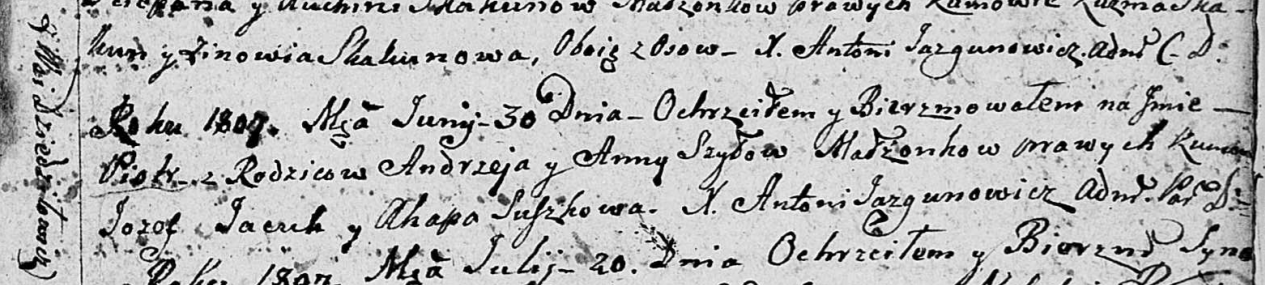 y Kuchini Skakunow Małżonkow prawych Kumowie Kuzma Ska-
kun y Zinowia Skakunowa, Oboig z Osow- X. Antoni Jazgunowicz Adm̃ C. D.
Roku 1807. Mcã Junij - 30 Dnia - Ochrzciłem y Bierzmowałem na Jmie -
Piotr - z Rodzicow Andrzeja y Anny Szyłow Małżonkow prawych Kumow
Jozef Jaczuk y Ahapa Suszkowa. X. Antoni Jazgunowicz Adm̃. Par D:
Roku 1807. Mcã Julij - 20. Dnia Ochrzciłem y Bierzm̃ Syna